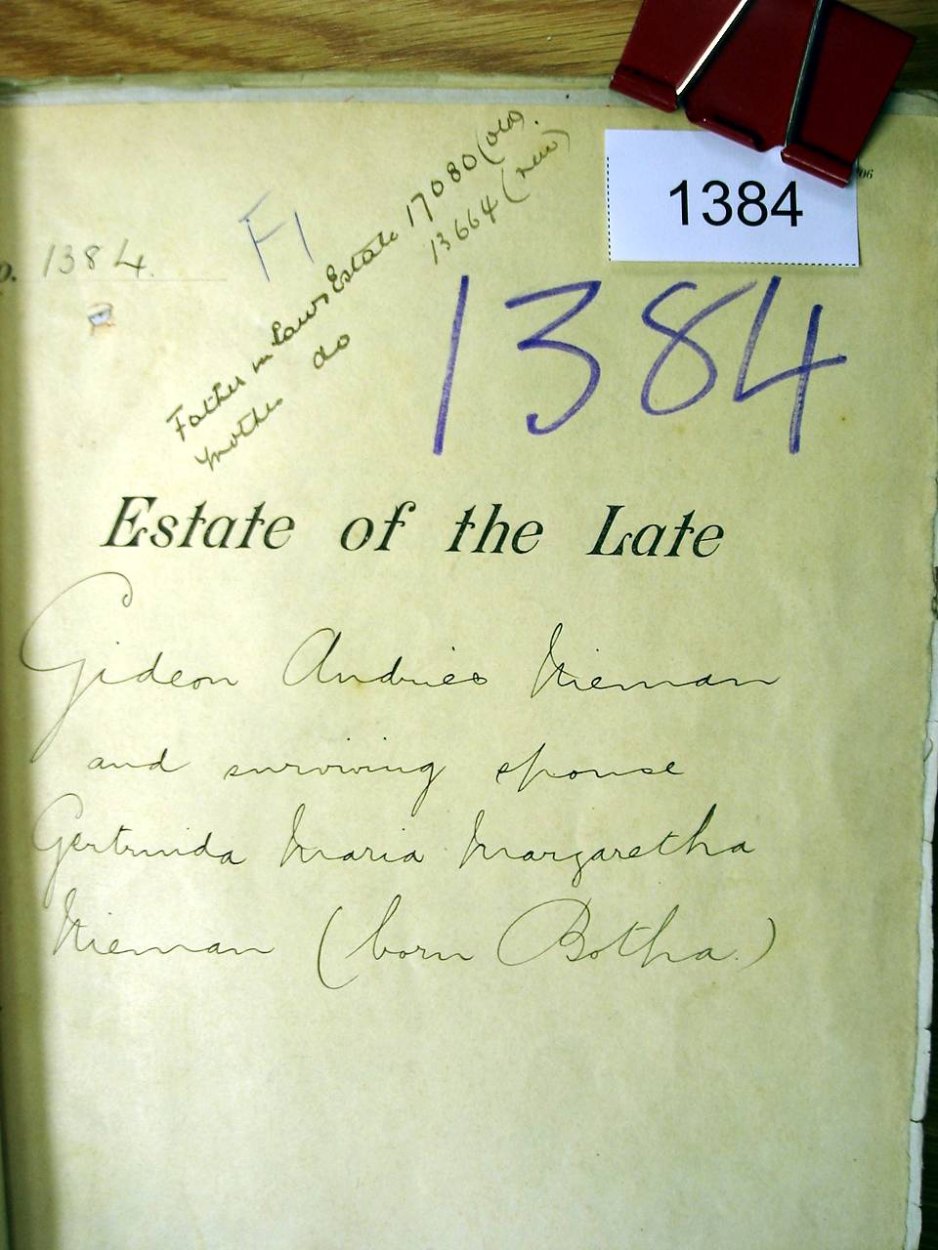 06
1384
o. 1384.
F1
Father in Laws Estate 17080 (old).
Mother do 13664 (new)
1384
Estate of the Late
Gideon Andries Nieman
and surviving spouse
Gertruida Maria Margaretha
Nieman (born Botha.)